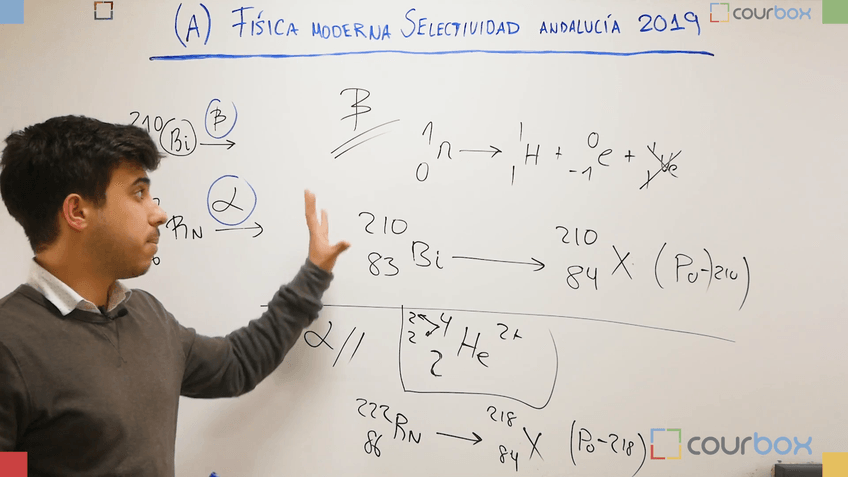 (A) FÍSICA MODERNA SELECTIVIDAD ANDALUCÍA 2019
courbox
210 Bi β →
β
1 0 n → 1 1 H + 0 -1 e +
Rn α →
210 83 Bi → 210 84 X (Po-210)
α // 4 2 He 2+
222 86 Rn → 218 84 X (Po-218)
courbox